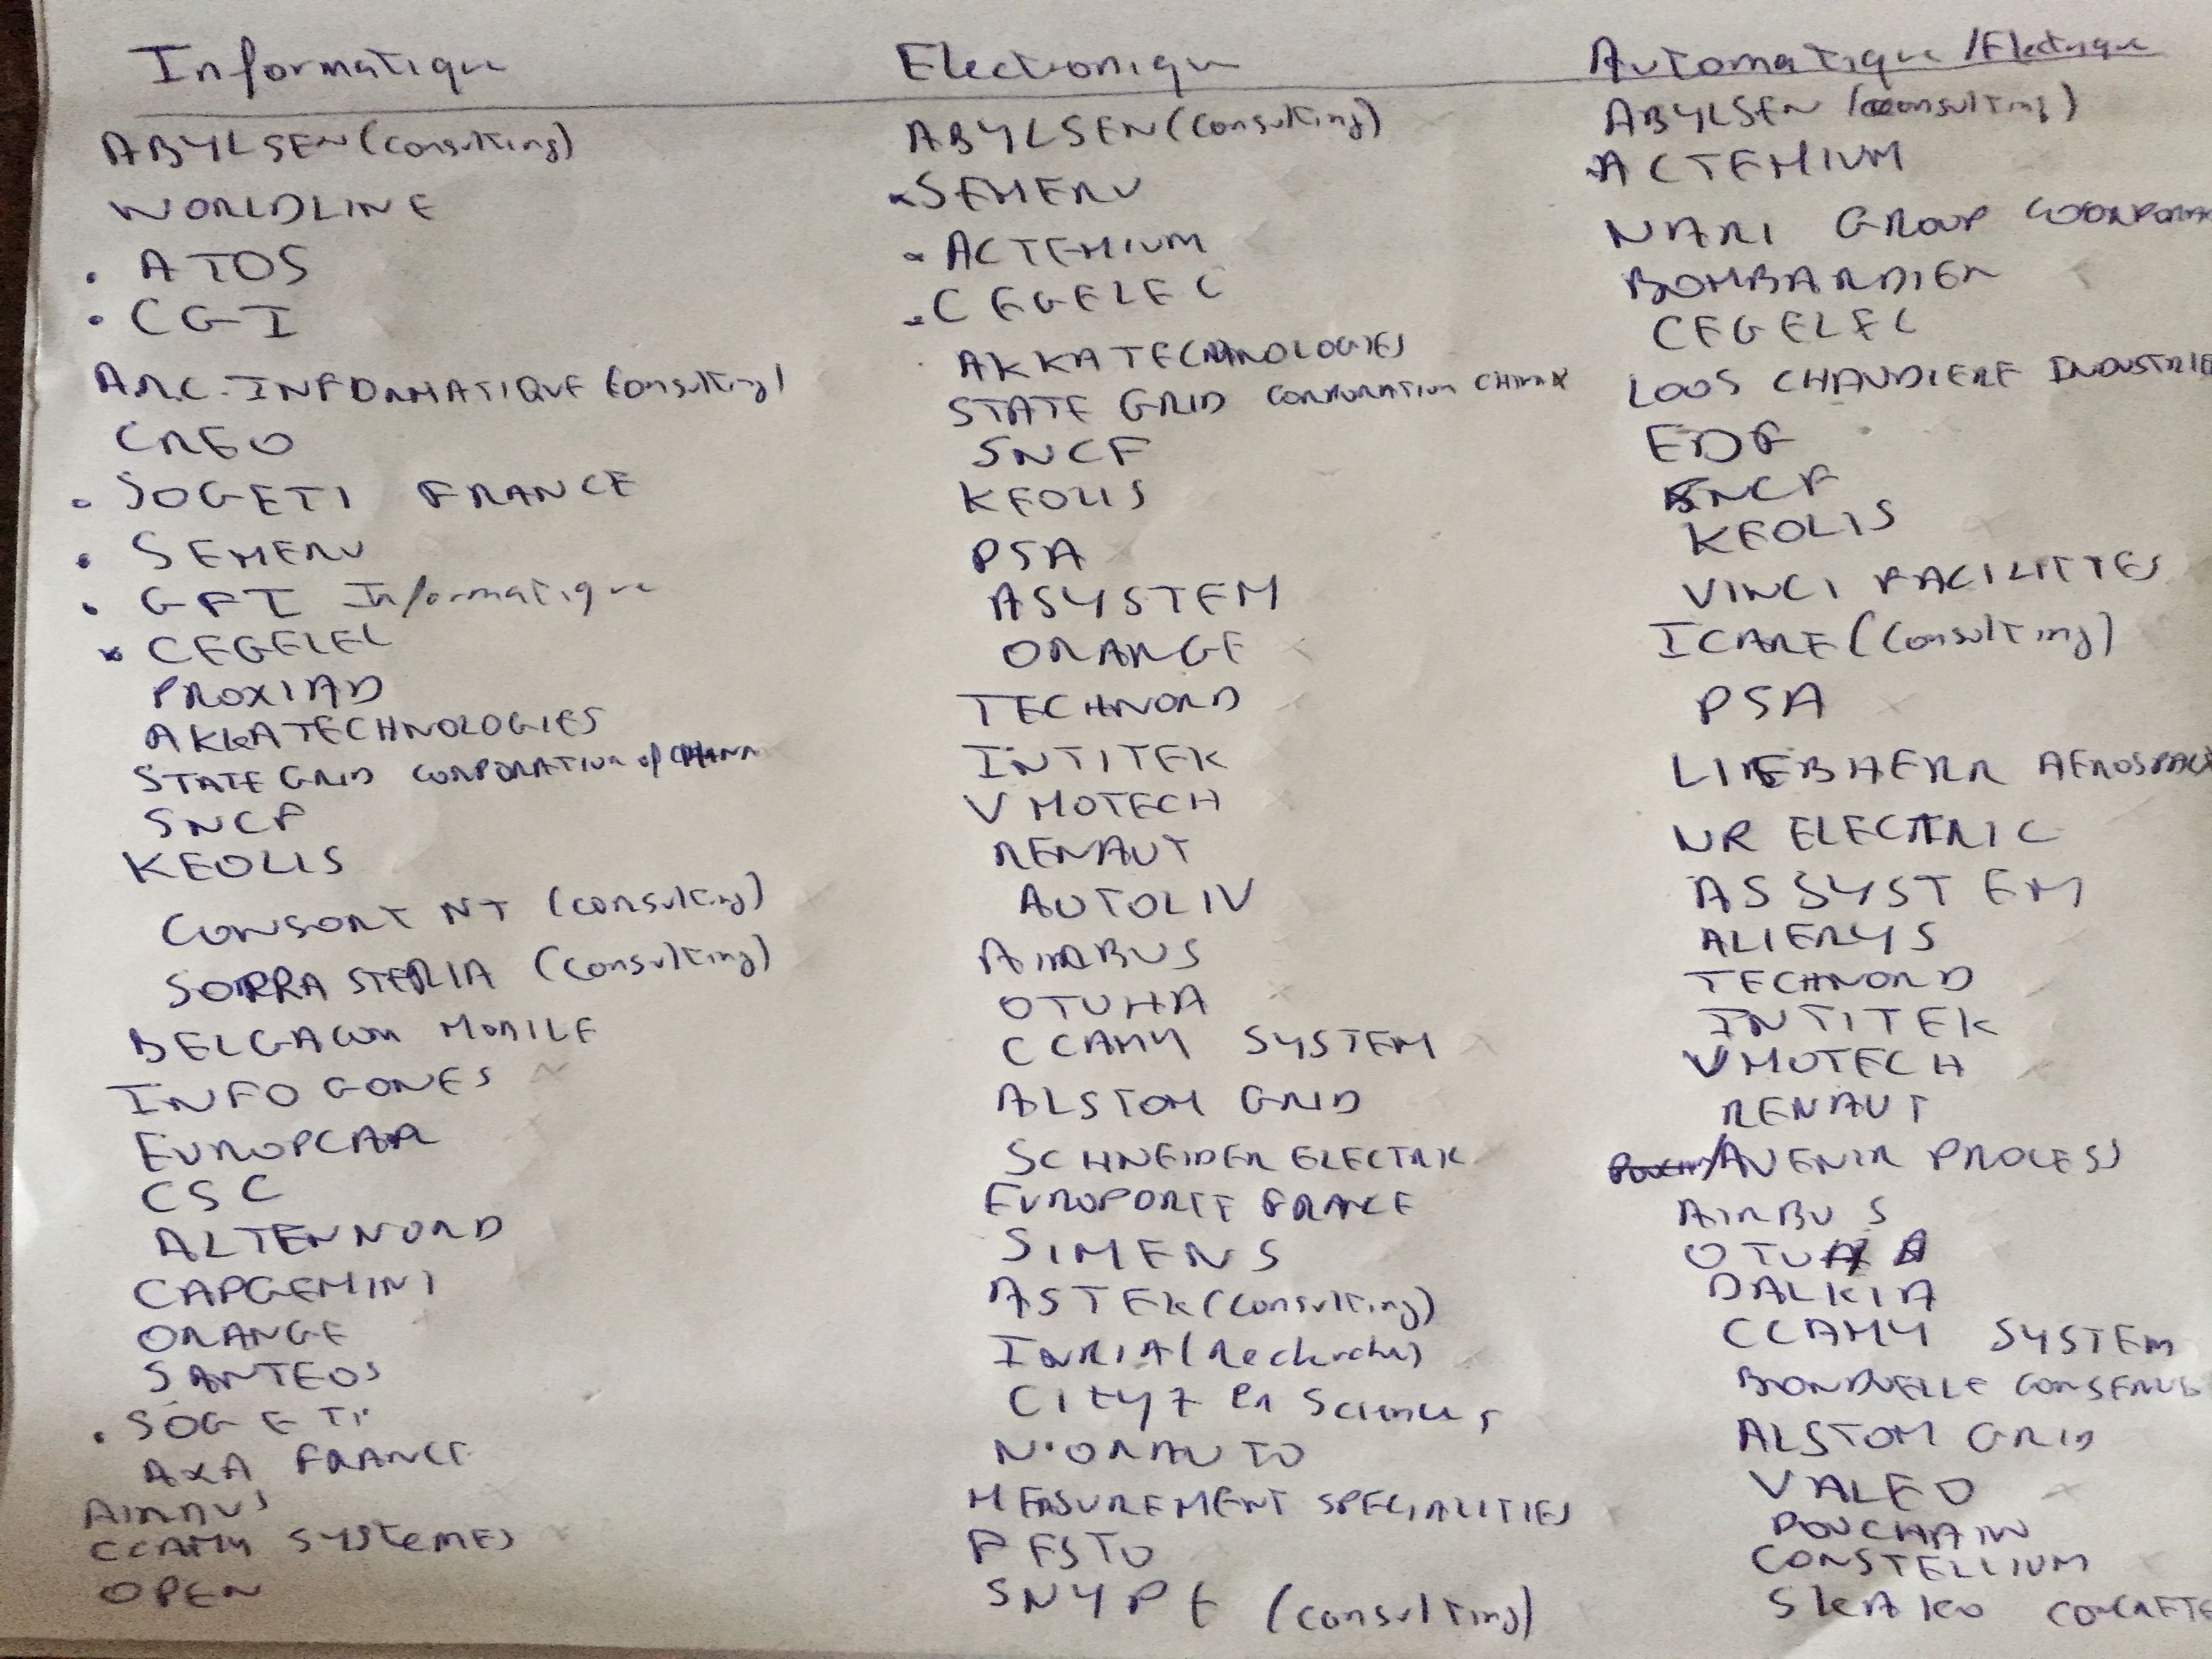 Informatique
ABYLSEN (consulting)
WORLDLINE
. ATOS
. CGI
A.R.C. INFORMATIQUE (consulting)
CREO
. SOGETI FRANCE
. SEMERU
. GFI Informatique
x CEGELEC
PROXIAD
AKKA TECHNOLOGIES
STATE GRID CORPORATION of
SNCF
KEOLIS
CONSORT NT (consulting)
SOPRA STERIA (consulting)
BELGACOM MOBILE
INFO GONES
EUROPCAR
CSC
ALTEN NORD
CAPGEMINI
ORANGE
SANTEOS
. SOGETI
AXA FRANCE
AIRBUS
CCAMY SYSTEMES
OPEN
Electronique
ABYLSEN (consulting)
x SEMERU
- ACTEMIUM
- CEGELEC
AKKA TECHNOLOGIES
STATE GRID CORPORATION CHINA
SNCF
KEOLIS
PSA
ASYSTEM
ORANGE
TECHNORD
INTITEK
V MOTECH
RENAUT
AUTOLIV
AIRBUS
OTUHA
CCAMY SYSTEM
ALSTOM GRID
SCHNEIDER ELECTRIC
EUROPORTE FRANCE
SIMENS
ASTEK (consulting)
INRIA (Recherche)
City 7 en Sciences
NORAUTO
MEASUREMENT SPECIALITIES
FESTO
SNYPE (consulting)
Automatique / Electrique
ABYLSEN (consulting)
ACTEMIUM
NARI GROUP
BOMBARDIER
CEGELEC
LOOS CHAUDIERE INDUSTRIE
EDF
SNCF
KEOLIS
VINCI FACILITTES
ICARE (consulting)
PSA
LIEBHERR AEROSPACE
NR ELECTRIC
ASSYSTEM
ALIERYS
TECHNORD
INTITEK
V MOTECH
RENAUT
AVENIR PROCESS
AIRBUS
DALKIA
CCAMY SYSTEM
BONDUELLE CONSERVE
ALSTOM GRID
VALEO
POUCHAIN
CONSTELLIUM
SKAKO CONCRETE